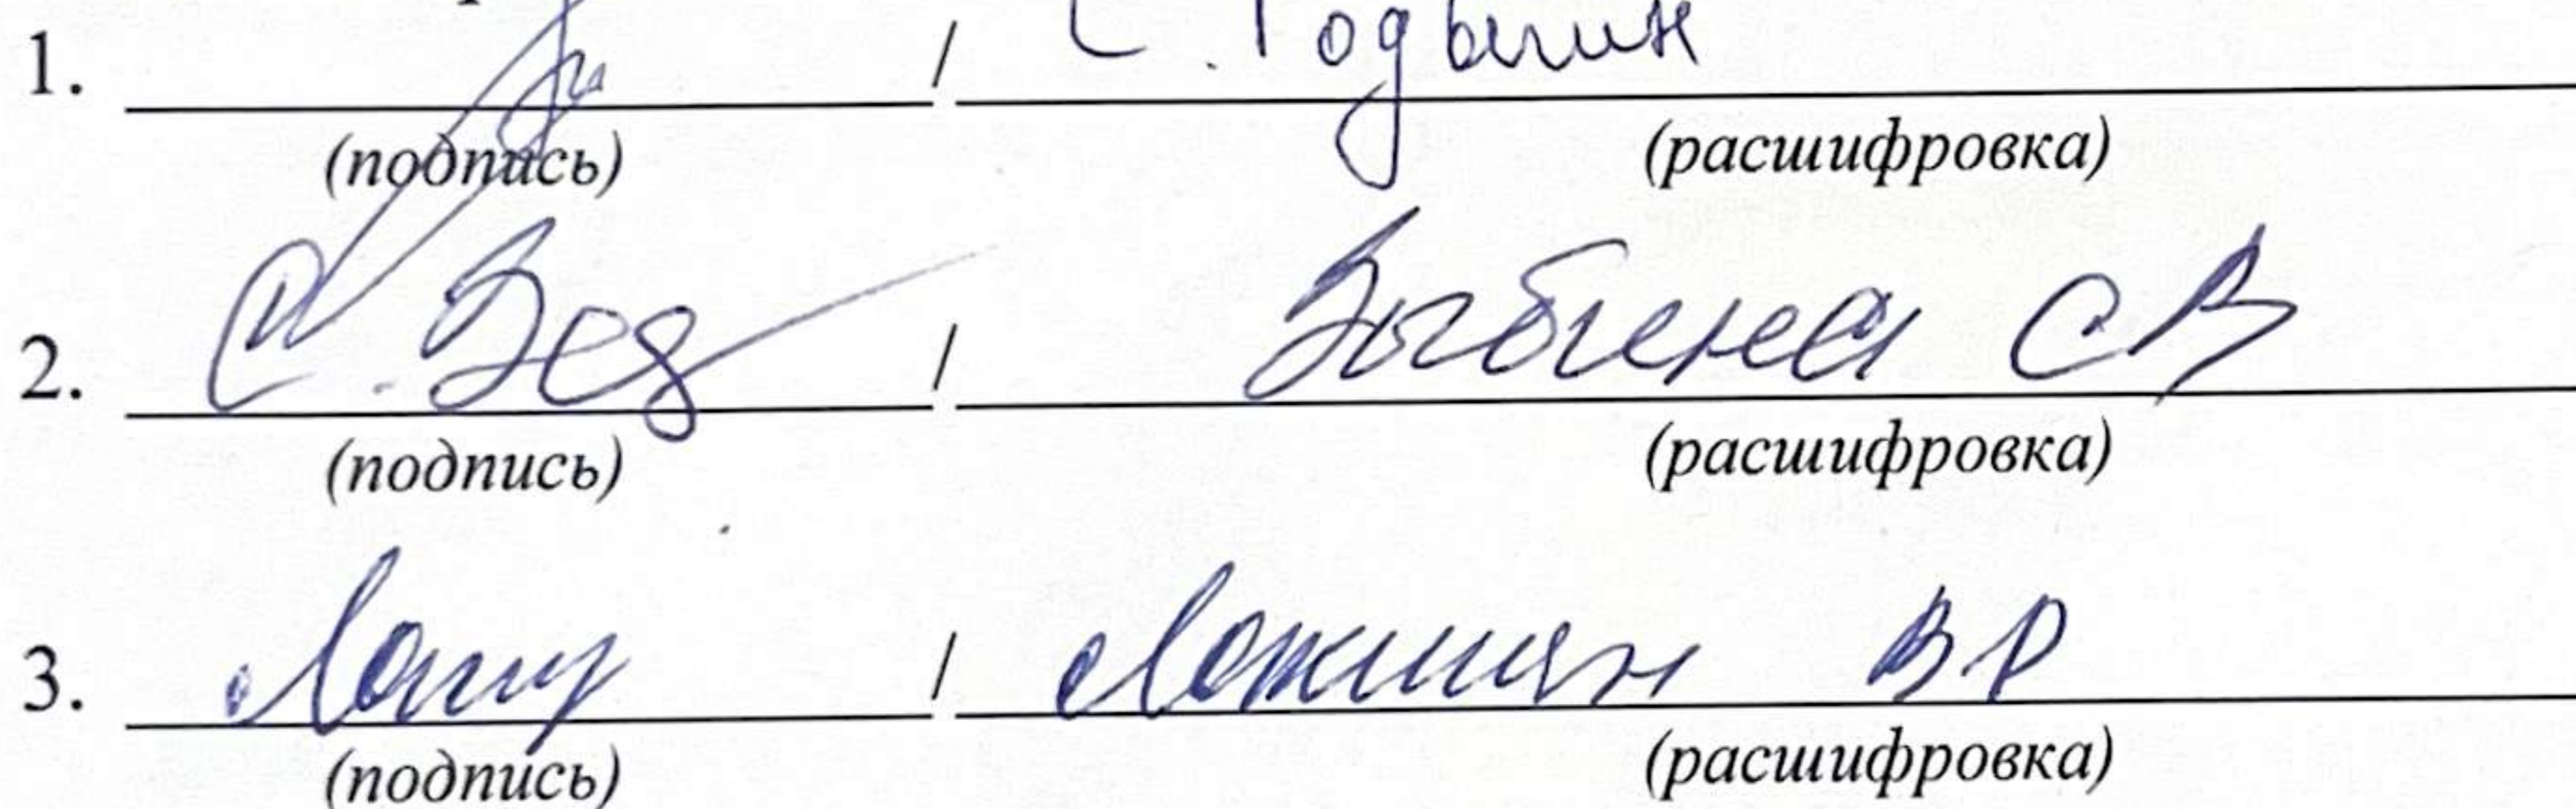 1. / С. Годынин
(подпись) (расшифровка)
2. С. Зыб / Зыбина СВ
(подпись) (расшифровка)
3. / Локшин ВР
(подпись) (расшифровка)